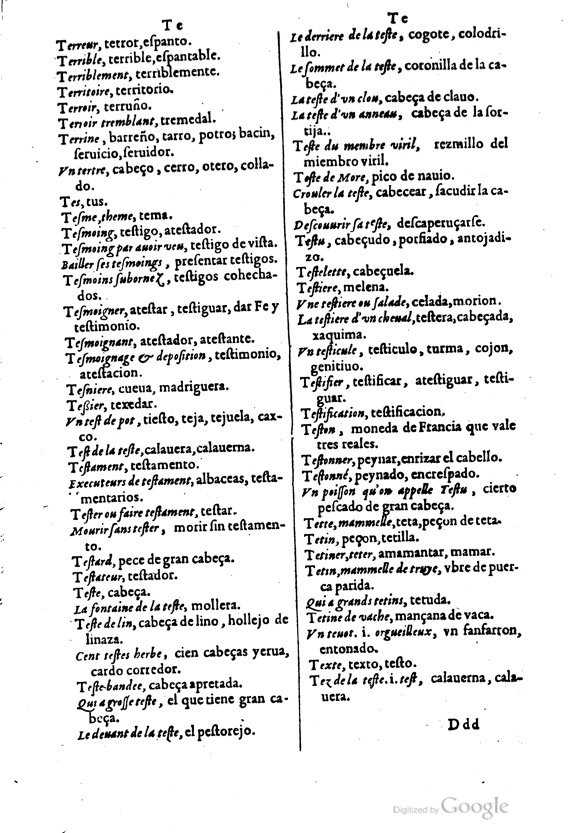 Te
Terreur, terror, eſpanto.
Terrible, terrible, eſpantable.
Terriblement, terriblemente.
Territoire, territorio.
Terroir, terruño.
Terroir tremblant, tremedal.
Terrine, barreño, tarro, potro; bacin,
ſeruicio, ſeruidor.
Vn tertre, cabeço, cerro, otero, colla-
do.
Tes, tus.
Teſme, theme, tema.
Teſmoing, teſtigo, ateſtador.
Teſmoing par auoir veu, teſtigo de viſta.
Bailler ſes teſmoings, preſentar teſtigos.
Teſmoins ſubornez, teſtigos cohecha-
dos.
Teſmoigner, ateſtar, teſtiguar, dar Fe y
teſtimonio.
Teſmoignant, ateſtador, ateſtante.
Teſmoignage & depoſition, teſtimonio,
ateſtacion.
Teſniere, cueua, madriguera.
Teßier, texedar.
Vn teſt de pot, tieſto, teja, tejuela, cax-
co.
Teſt de la teſte, calauera, calauerna.
Teſtament, teſtamento.
Executeurs de teſtament, albaceas, teſta-
mentarios.
Teſter ou faire teſtament, teſtar.
Mourir ſans teſter, morir ſin teſtamen-
to.
Teſtard, pece de gran cabeça.
Teſtateur, teſtador.
Teſte, cabeça.
La fontaine de la teſte, mollera.
Teſte de lin, cabeça de lino, hollejo de
linaza.
Cent teſtes herbe, cien cabeças yerua,
cardo corredor.
Teſte-bandee, cabeça apretada.
Qui a groſſe teſte, el que tiene gran ca-
beça.
Le deuant de la teſte, el peſtorejo.
Te
Le derriere de la teſte, cogote, colodri-
llo.
Le ſommet de la teſte, coronilla de la ca-
beça.
La teſte d'vn clou, cabeça de clauo.
La teſte d'vn anneau, cabeça de la ſor-
tija.
Teſte du membre viril, rezmillo del
miembro viril.
Teſte de More, pico de nauio.
Crouler la teſte, cabecear, ſacudir la ca-
beça.
Deſcouurir ſa teſte, deſcaperuçarſe.
Teſtu, cabeçudo, porfiado, antojadi-
zo.
Teſtelette, cabeçuela.
Teſtiere, melena.
Vne teſtiere ou ſalade, celada, morion.
La teſtiere d'vn cheual, teſtera, cabeçada,
xaquima.
Vn teſticule, teſticulo, turma, cojon,
genitiuo.
Teſtifier, teſtificar, ateſtiguar, teſti-
guar.
Teſtification, teſtificacion.
Teſton, moneda de Francia que vale
tres reales.
Teſtonner, peynar, enrizar el cabello.
Teſtonné, peynado, encreſpado.
Vn poiſſon qu'on appelle Teſtu, cierto
peſcado de gran cabeça.
Tette, mammelle, teta, peçon de teta.
Tetin, peçon, tetilla.
Tetiner, teter, amamantar, mamar.
Tetin, mammelle de truye, vbre de puer-
ca parida.
Qui a grands tetins, tetuda.
Tetine de vache, mançana de vaca.
Vn teuot. i. orgueilleux, vn fanfarron,
entonado.
Texte, texto, teſto.
Tez de la teſte. i. teſt, calauerna, cala-
uera.
Ddd
Digitized by Google